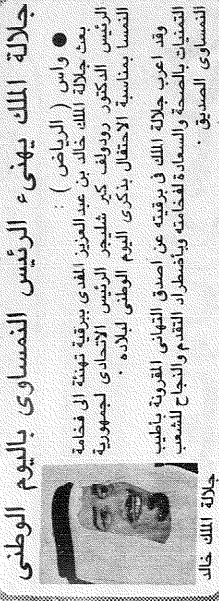 جلالة الملك يهنىء الرئيس النمساوى باليوم الوطنى
● واس ( الرياض ) :
بعث جلالة الملك خالد بن عبد العزيز المفدى ببرقية تهنئة الى فخامة
الرئيس الدكتور رودولف كير شليجر الرئيس الاتحادى لجمهورية
النمسا بمناسبة الاحتفال بذكرى اليوم الوطنى لبلاده .
وقد اعرب جلالة الملك فى برقيته عن اصدق التهانى المقرونة بأطيب
التمنيات بالصحة والسعادة لفخامته وباضطراد التقدم والنجاح للشعب
النمساوى الصديق .
جلالة الملك خالد